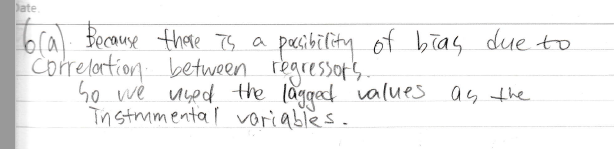 Date
6(a). Because there is a possibility of bias due to
Correlation between regressors.
So we used the lagged values as the
Instrumental variables.